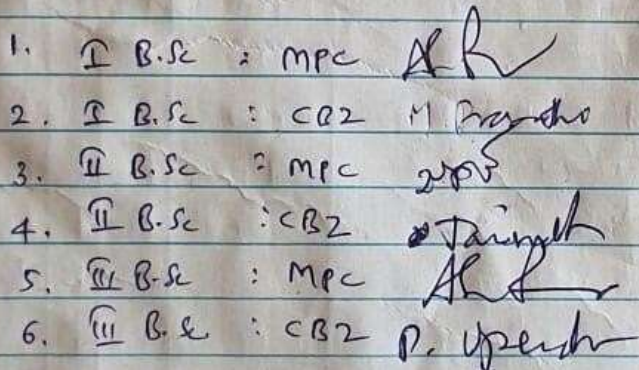 1. I B.Sc : MPC
2. I B.Sc : CBZ M.
3. II B.Sc : MPC
4. II B.Sc : CBZ
5. III B.Sc : MPC
6. III B.Sc : CBZ P. Upendr